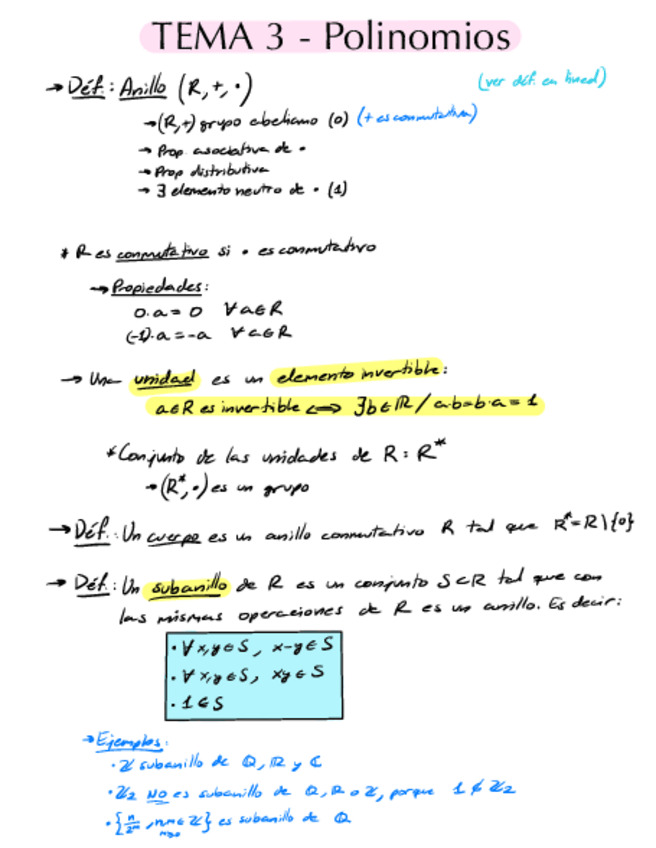 TEMA 3 - Polinomios
→ Déf.: Anillo (R, +, ·) (ver déf. en lineal)
→ (R,+) grupo abeliano (0) (+ es conmutativa)
→ Prop. asociativa de ·
→ Prop distributiva
→ ∃ elemento neutro de · (1)
* R es conmutativo si · es conmutativo
→ Propiedades:
0·a = 0 ∀a∈R
(-1)·a = -a ∀a∈R
→ Una unidad es un elemento invertible:
a∈R es invertible ⟺ ∃b∈ℝ / a·b=b·a = 1
* Conjunto de las unidades de R: R*
→ (R*, ·) es un grupo
→ Déf.: Un cuerpo es un anillo conmutativo R tal que R*=R\{0}
→ Déf.: Un subanillo de R es un conjunto S⊂R tal que con
las mismas operaciones de R es un anillo. Es decir:
· ∀x,y∈S, x-y∈S
· ∀x,y∈S, xy∈S
· 1∈S
→ Ejemplos:
· ℤ subanillo de ℚ, ℝ y ℂ
· ℤ2 NO es subanillo de ℚ, ℝ o ℤ, porque 1 ∉ ℤ2
· {n/2^m, n,m∈ℤ} es subanillo de ℚ
m≥0